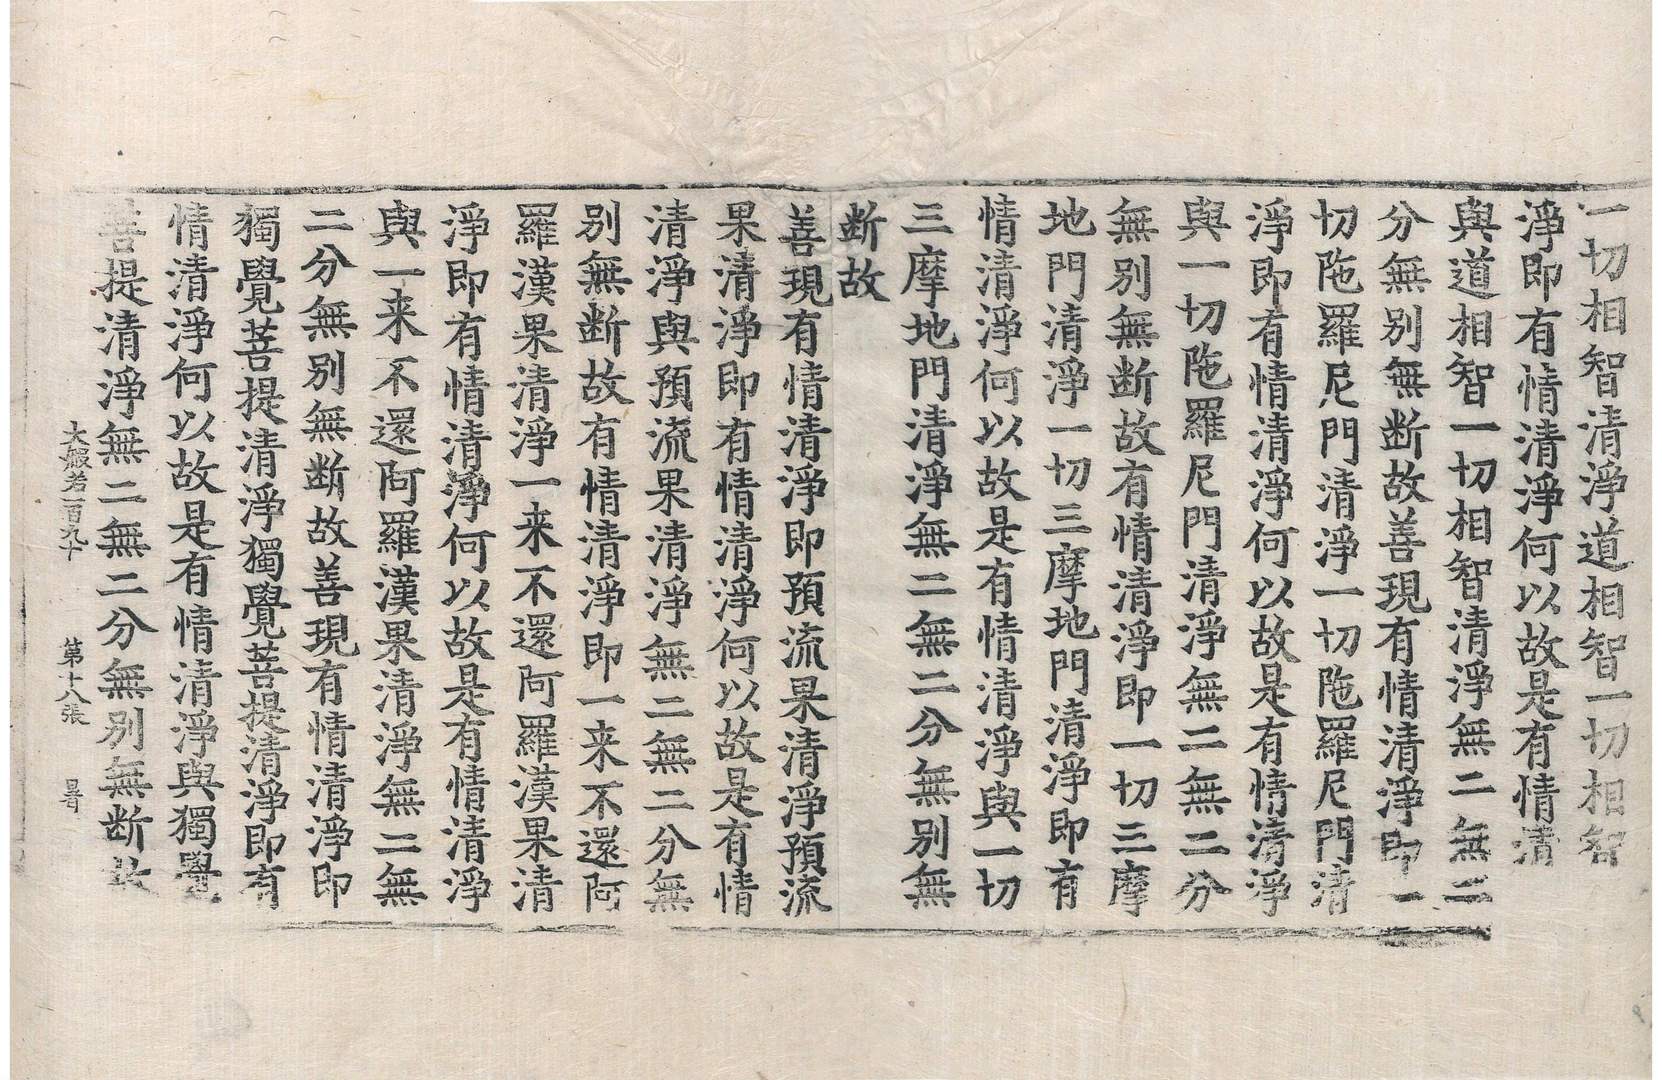 一切相智清淨道相智一切相智
淨即有情清淨何以故是有情清
與道相智一切相智清淨無二無二
分無别無断故善現有情清淨即一
切陁羅尼門清淨一切陁羅尼門清
淨即有情清淨何以故是有情清淨
與一切陁羅尼門清淨無二無二分
無别無断故有情清淨即一切三摩
地門清淨一切三摩地門清淨即有
情清淨何以故是有情清淨與一切
三摩地門清淨無二無二分無别無
断故
善現有情清淨即預流果清淨預流
果清淨即有情清淨何以故是有情
清淨與預流果清淨無二無二分無
别無断故有情清淨即一来不還阿
羅漢果清淨一来不還阿羅漢果清
淨即有情清淨何以故是有情清淨
與一来不還阿羅漢果清淨無二無
二分無别無断故善現有情清淨即
獨覺菩提清淨獨覺菩提清淨即有
情清淨何以故是有情清淨與獨覺
菩提清淨無二無二分無别無断故
大般若一百九十 第十八張